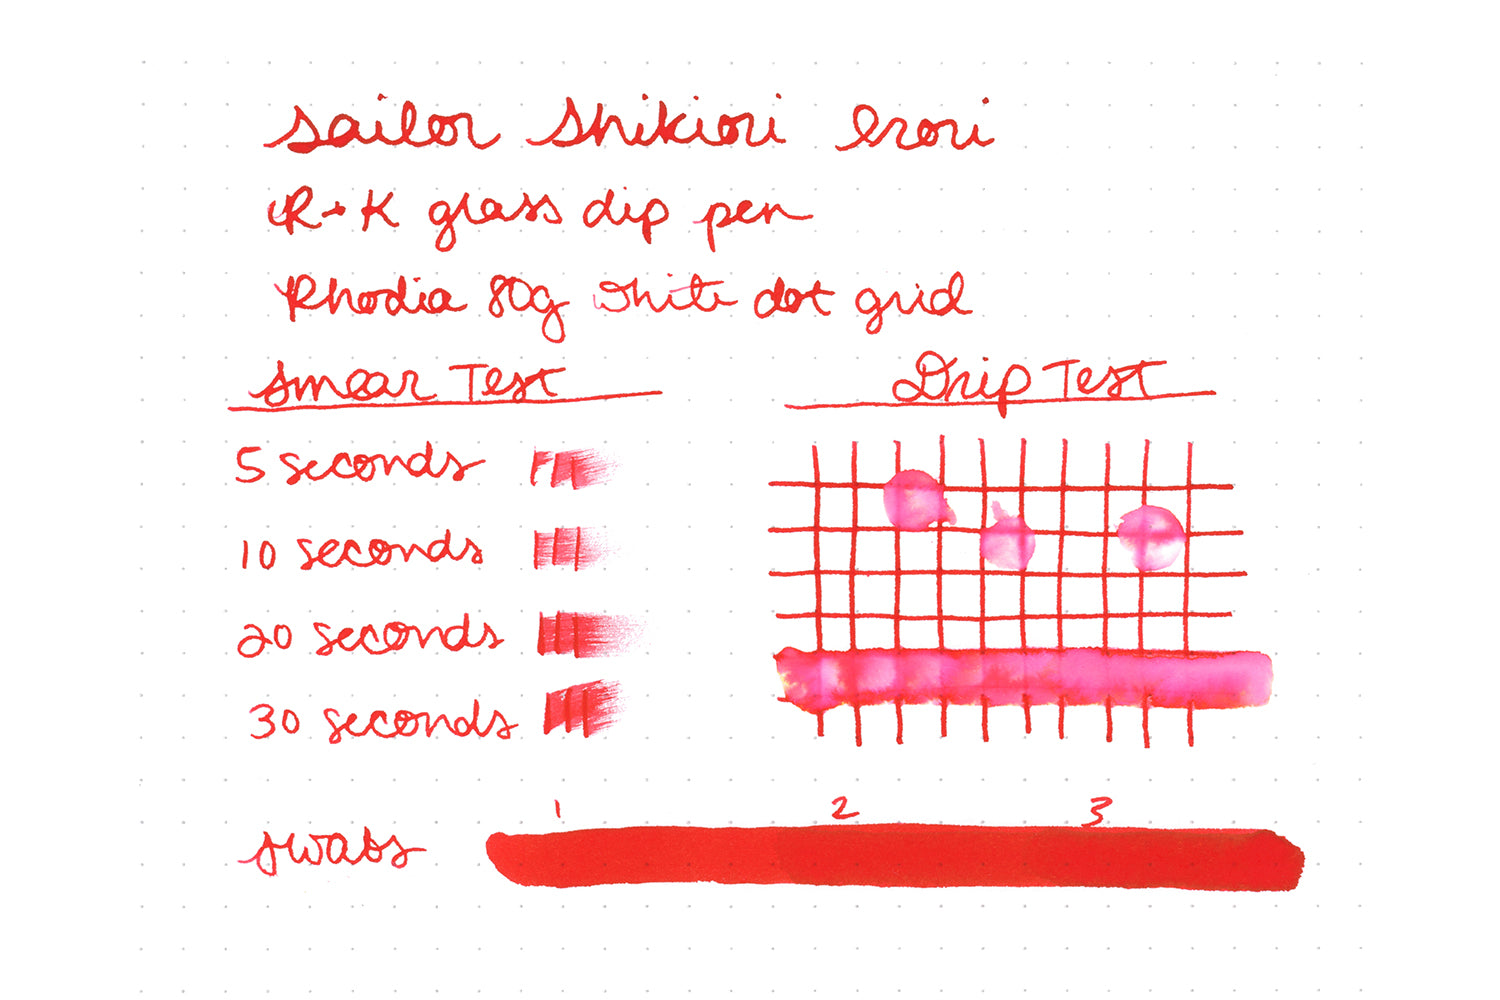 sailor Shikiori Irori
R+K glass dip pen
Rhodia 80g white dot grid
Smear Test
5 seconds
10 seconds
20 seconds
30 seconds
Drip Test
1 2 3
swabs